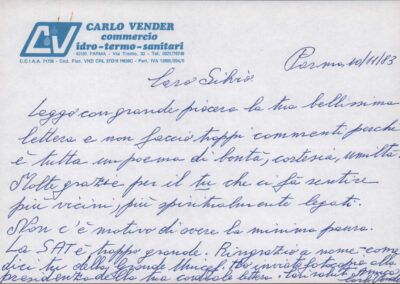 CARLO VENDER
commercio
idro-termo-sanitari
43100 PARMA - Via Trento,
C.C.I.A.A. - Cod. Fisc. VND CRL
CV
Parma 10/11/83
Caro Silvio
Leggo con grande piacere la tua bellissima
lettera e non faccio troppi commenti perché
è tutta un poema di bontà, cortesia, umiltà.
Molte grazie per il tu che ci fa sentire
più vicini, più spiritualmente legati.
Non c'è motivo di avere la minima paura.
La SAT è troppo grande. Ringrazio a nome - come
dici tu della Grande Unicef. Ho inviato fotocopia alla
presidenza della tua cordiale lettera. Cari saluti
Carlo Vender